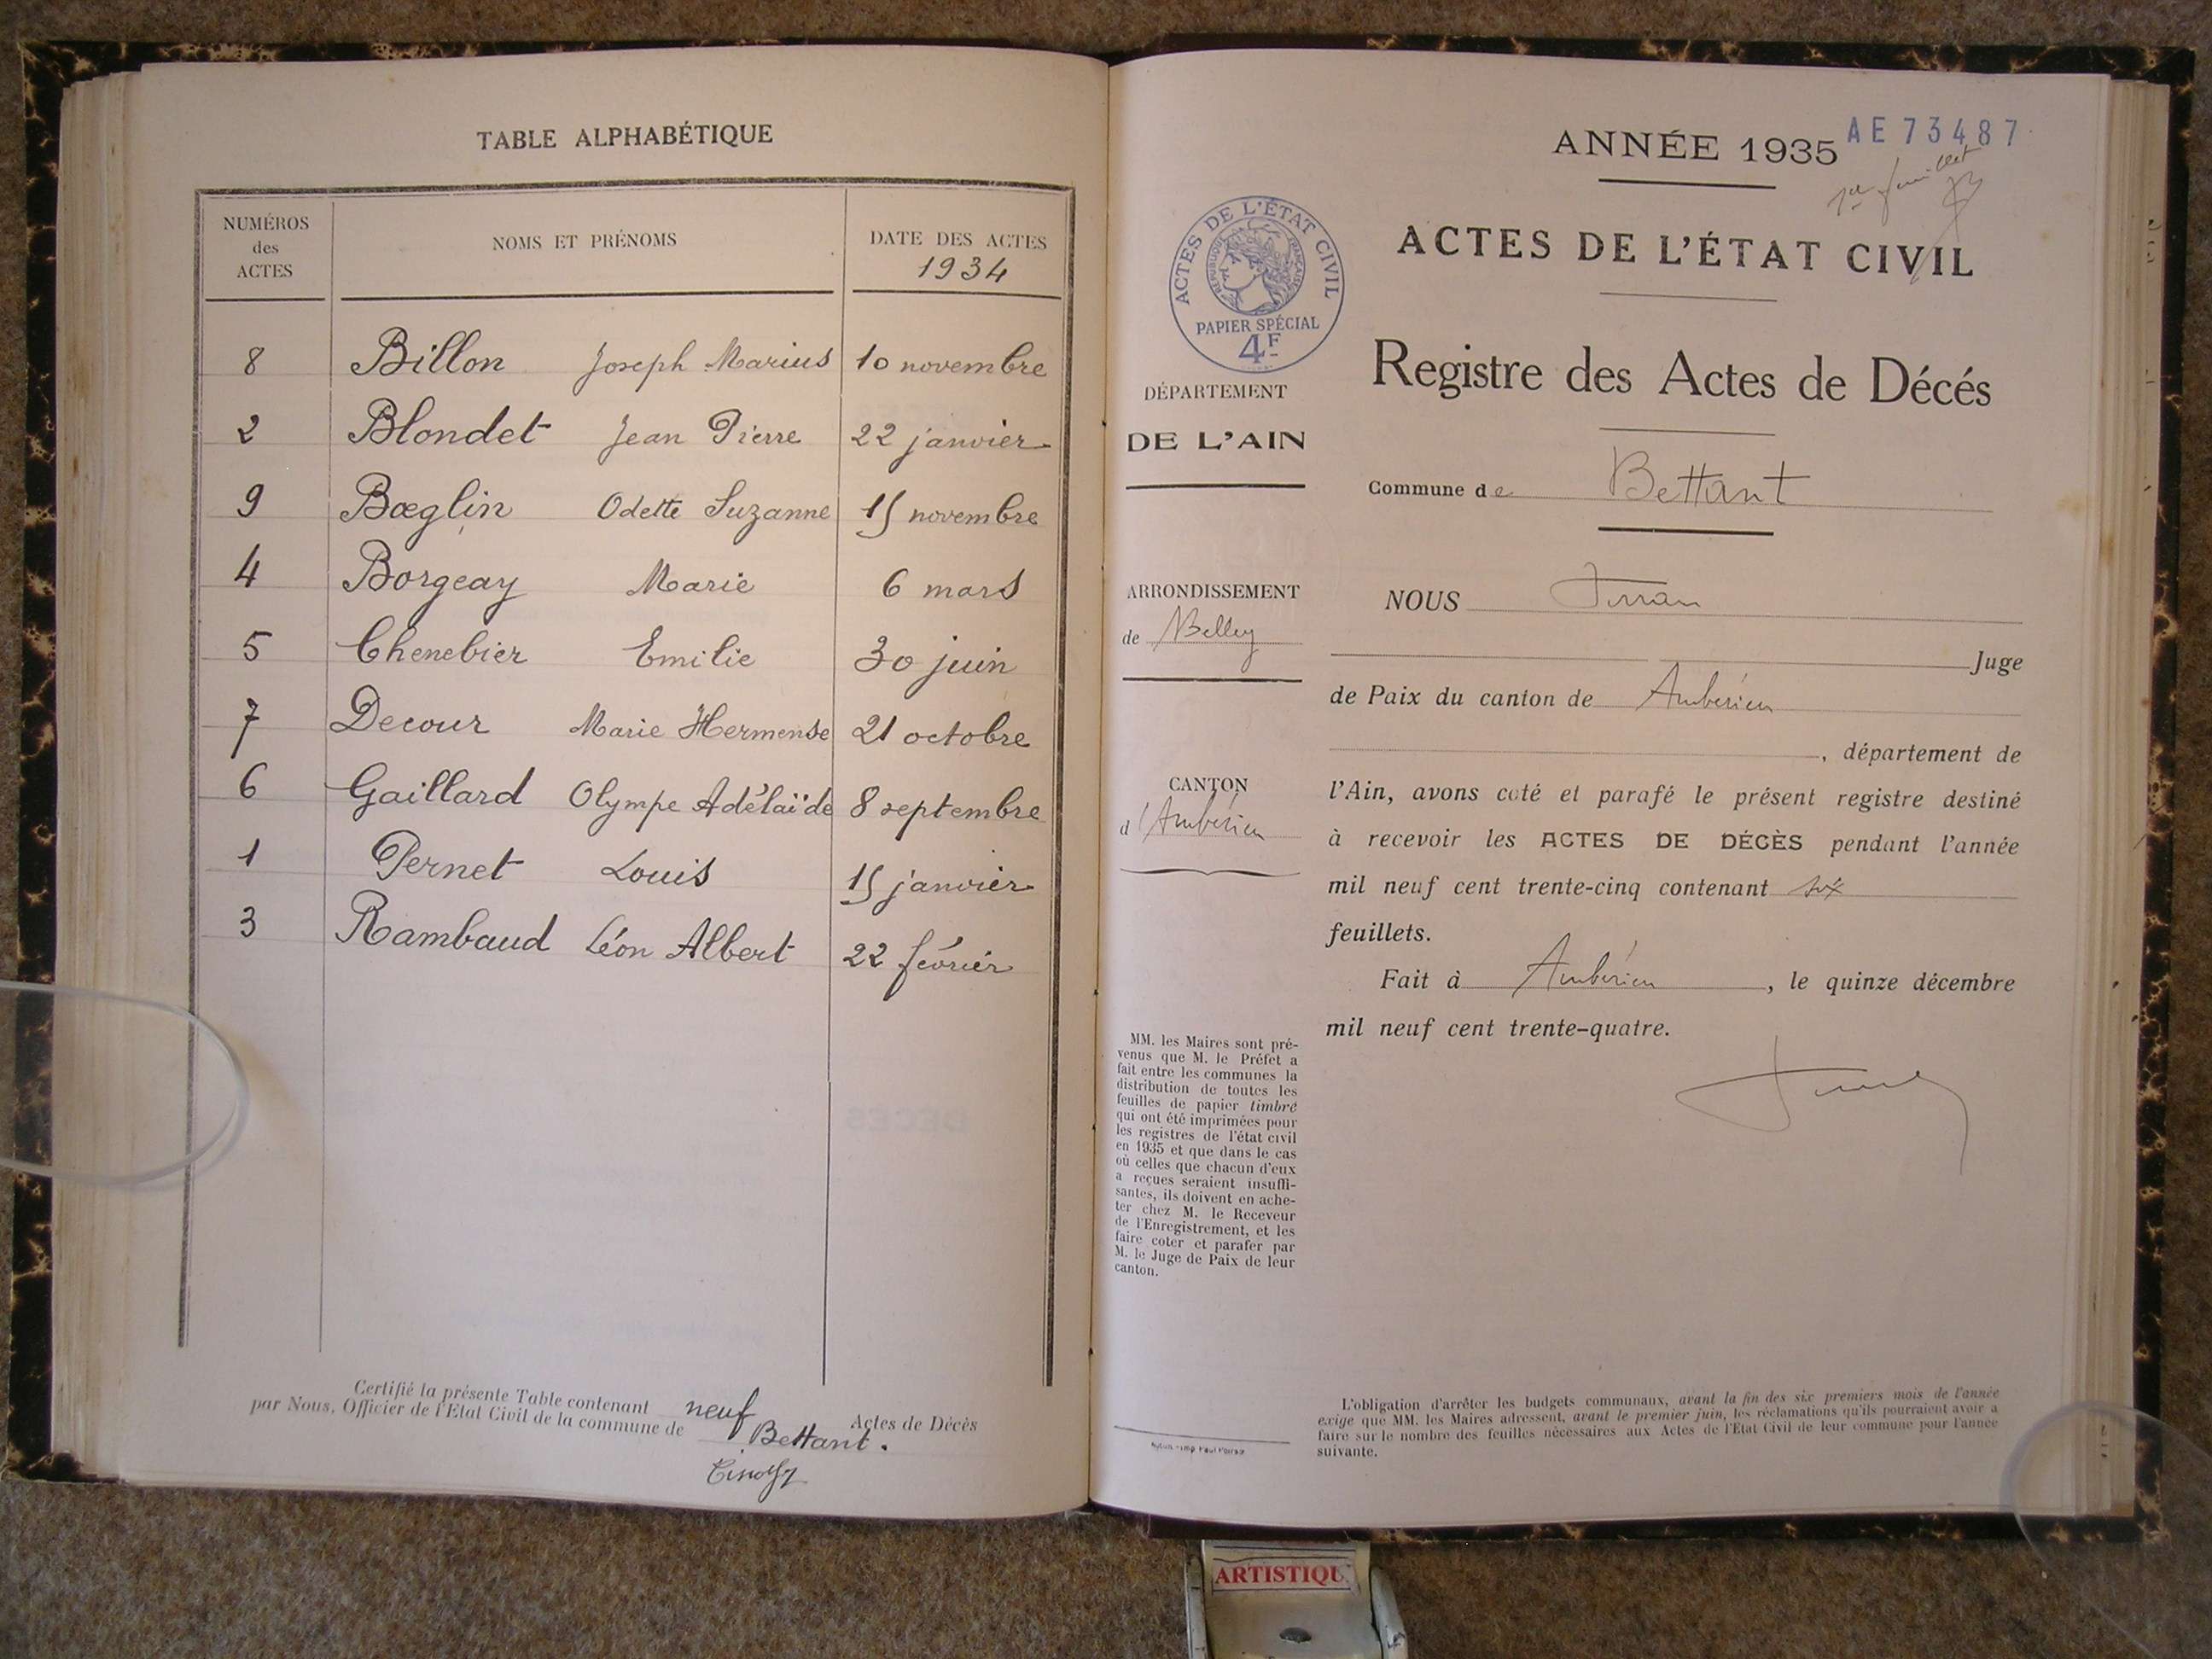 TABLE ALPHABÉTIQUE
NUMÉROS des ACTES
NOMS ET PRÉNOMS
DATE DES ACTES
1934
8 Billon Joseph Marius 10 novembre
2 Blondet Jean Pierre 22 janvier
9 Bœglin Odette Suzanne 15 novembre
4 Borgeay Marie 6 mars
5 Chenebier Emilie 30 juin
7 Decour Marie Hermense 21 octobre
6 Gaillard Olympe Adélaïde 8 septembre
1 Pernet Louis 15 janvier
3 Rambaud Léon Albert 22 février
Certifié la présente Table contenant neuf Actes de Décès
par Nous, Officier de l'Etat Civil de la commune de Bettant.
ANNÉE 1935
AE 73487
1er feuillet
ACTES DE L'ÉTAT CIVIL
RÉPUBLIQUE FRANÇAISE
PAPIER SPÉCIAL
4F
ACTES DE L'ÉTAT CIVIL
Registre des Actes de Décés
DÉPARTEMENT
DE L'AIN
Commune de Bettant
ARRONDISSEMENT
de Belley
CANTON
d'Ambérieu
NOUS
Juge
de Paix du canton de Ambérieu
, département de
l'Ain, avons coté et parafé le présent registre destiné
à recevoir les ACTES DE DÉCÈS pendant l'année
mil neuf cent trente-cinq contenant six
feuillets.
Fait à Ambérieu, le quinze décembre
mil neuf cent trente-quatre.
MM. les Maires sont pré-
venus que M. le Préfet a
fait entre les communes la
distribution de toutes les
feuilles de papier timbré
qui ont été imprimées pour
les registres de l'état civil
en 1935 et que dans le cas
où celles que chacun d'eux
a reçues seraient insuffi-
santes, ils doivent en ache-
ter chez M. le Receveur
de l'Enregistrement, et les
faire coter et parafer par
M. le Juge de Paix de leur
canton.
L'obligation d'arrêter les budgets communaux, avant la fin des six premiers mois de l'année
exige que MM. les Maires adressent, avant le premier juin, les réclamations qu'ils pourraient avoir a
faire sur le nombre des feuilles nécessaires aux Actes de l'Etat Civil de leur commune pour l'année
suivante.
ARTISTIQU